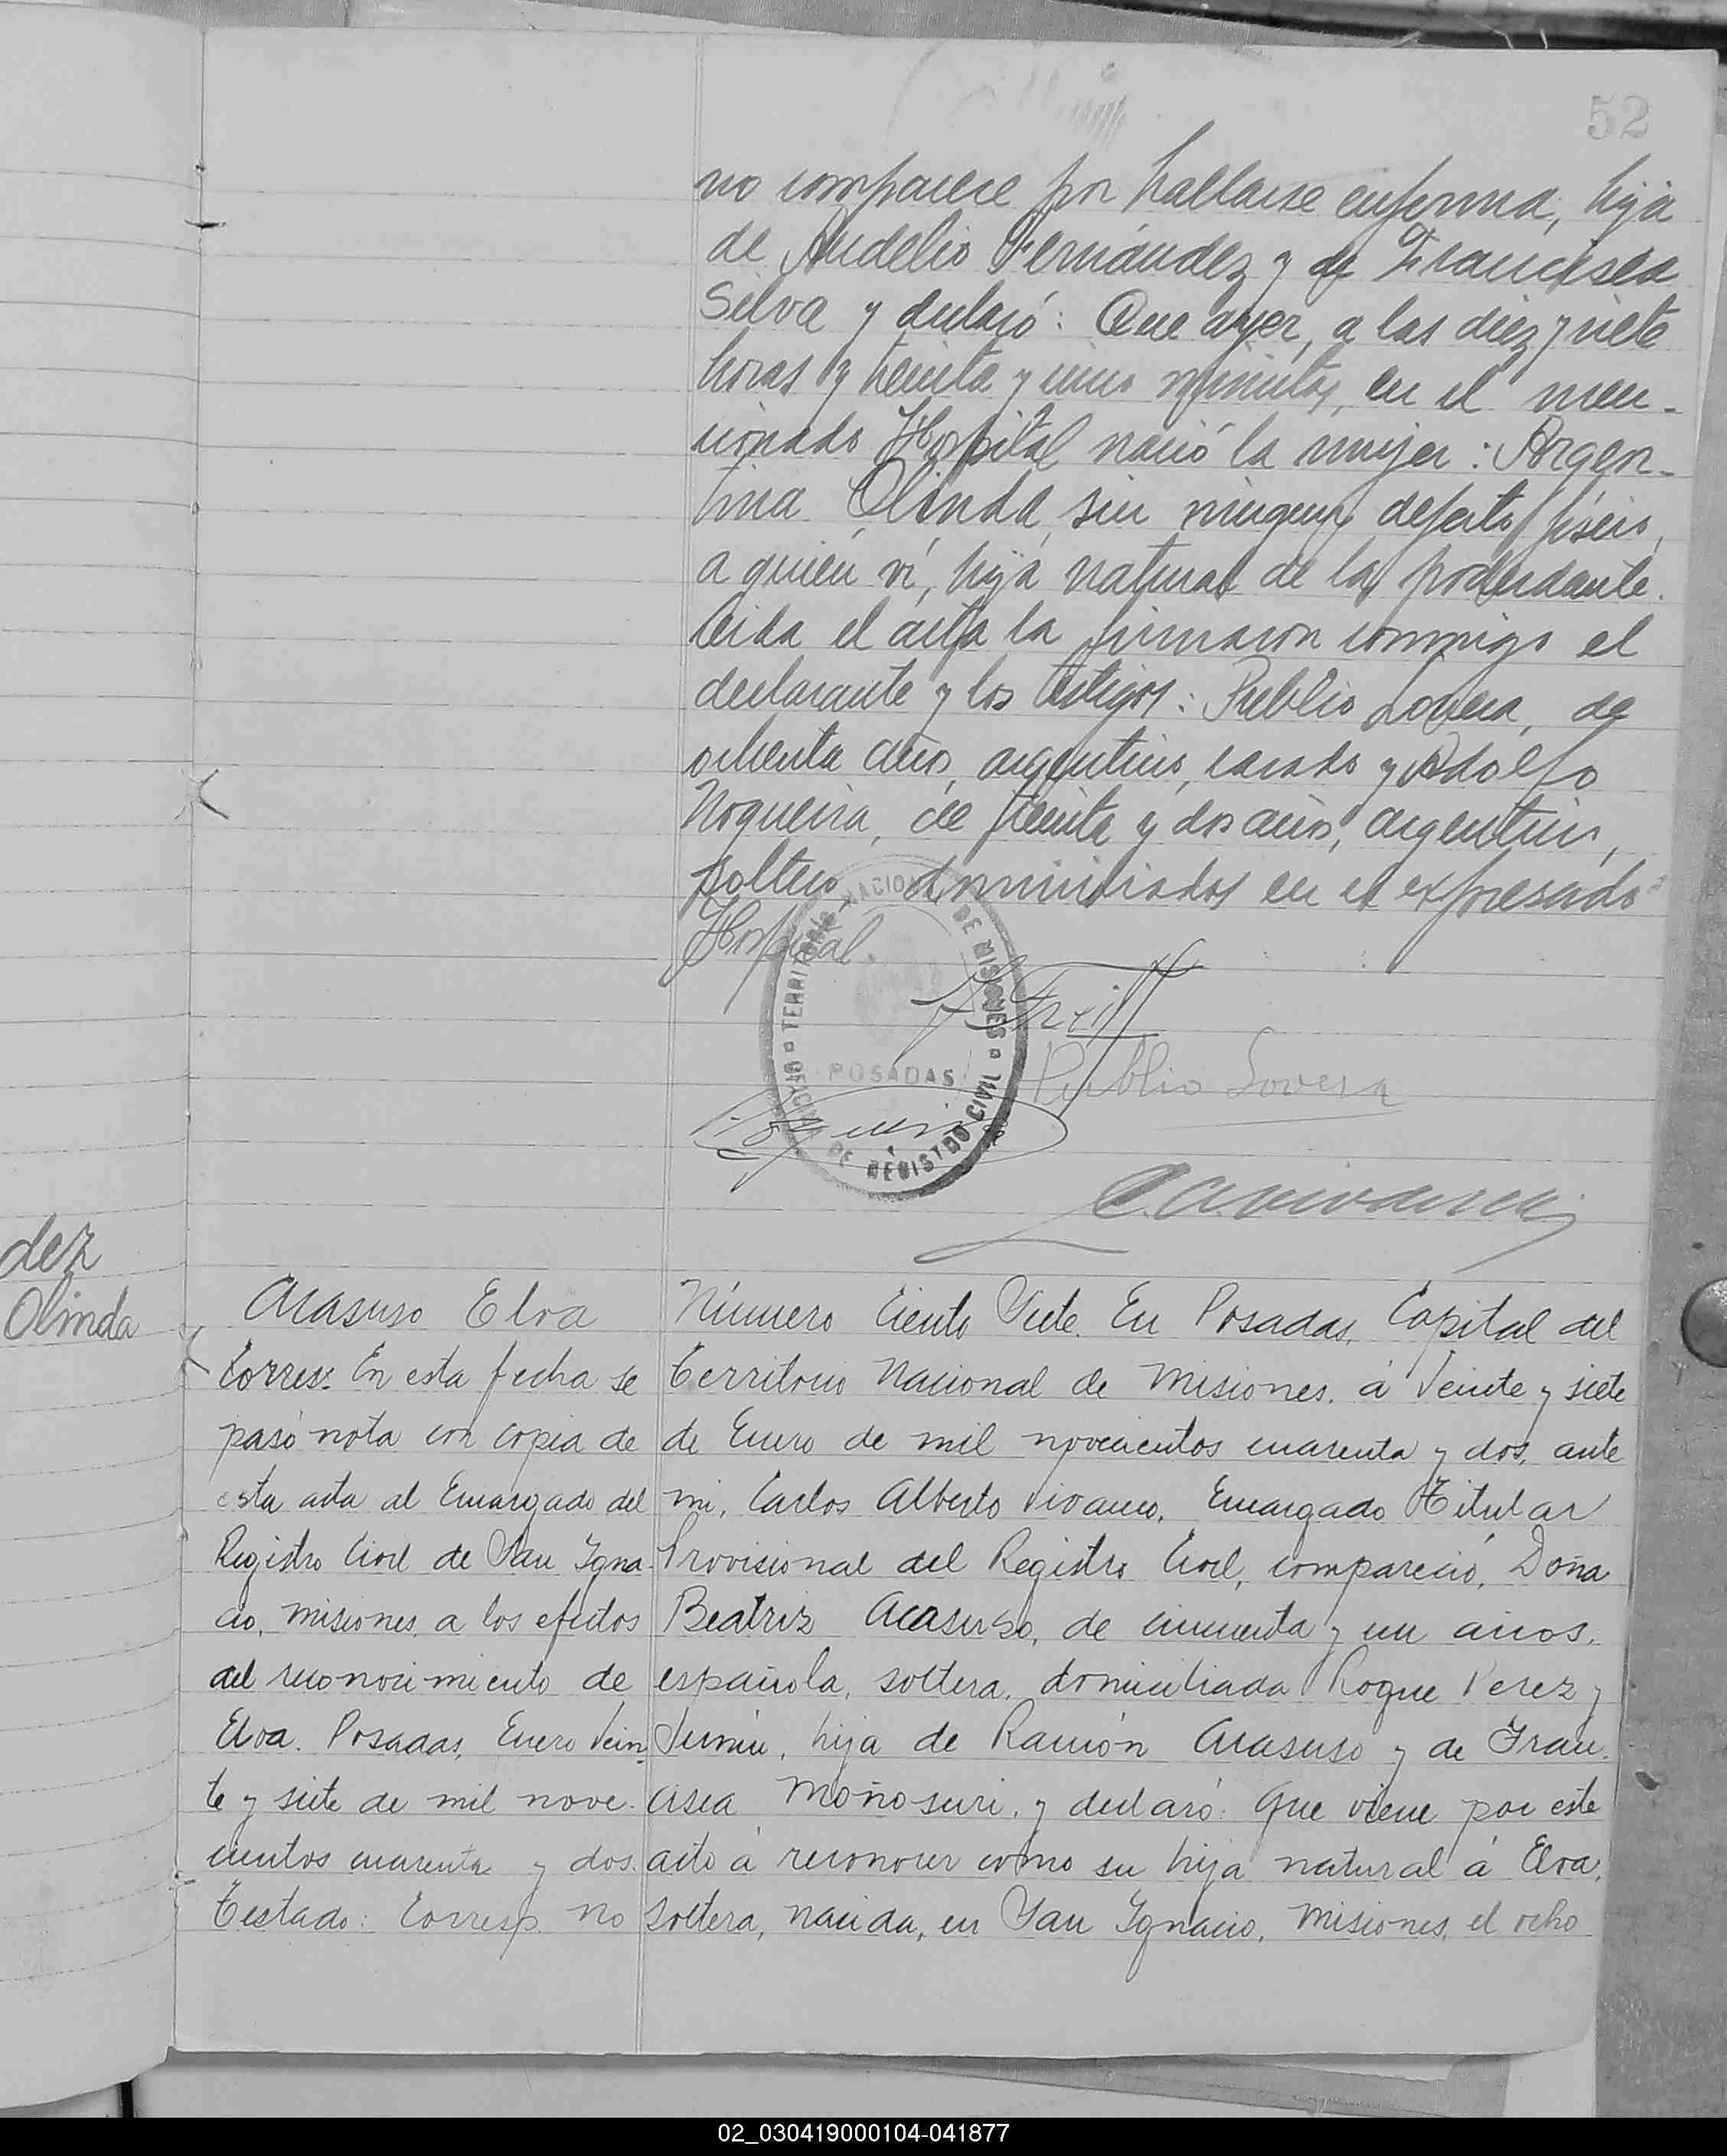 52
no comparece por hallarse enferma, hija
de Audelio Fernández y de Francisca
Silva y declaró: Que ayer, a las diez y siete
horas y treinta y cinco minutos, en el men-
cionado Hospital nació la mujer: Argen-
tina Olinda, sin ningun defecto físico,
a quién ví, hija natural de la poderdante.
Leida el acta la firmaron conmigo el
declarante y los testigos: Publio Lovera, de
ochenta años, argentino, casado y Adolfo
Nogueira, de treinta y dos años, argentino,
soltero domiciliados en el expresado
Hospital.
TERRITORIO NACIONAL DE MISIONES
POSADAS
DE REGISTRO CIVIL
Publio Lovera
dez
Olinda
Acasuso Elva
Corres: En esta fecha se
pasó nota con copia de
esta acta al Encargado del
Registro Civil de San Igna-
cio, Misiones, a los efectos
del reconocimiento de
Elva. Posadas, Enero Vein-
te y siete de mil nove-
cientos cuarenta y dos.
Testado: Corresp. no
Número Ciento Siete. En Posadas, Capital del
Territorio Nacional de Misiones, á Veinte y siete
de Enero de mil novecientos cuarenta y dos, ante
mi, Carlos Alberto Vivanco, Encargado Titular
Provisional del Registro Civil, compareció, Doña
Beatriz Acasuso, de cincuenta y un años,
española, soltera, domiciliada Roque Perez y
Junin, hija de Ramón Acasuso y de Fran-
cisca Moñosuri, y declaró: Que viene por este
acto á reconocer como su hija natural á Elva,
soltera, nacida, en San Ignacio, Misiones, el ocho
02_030419000104-041877